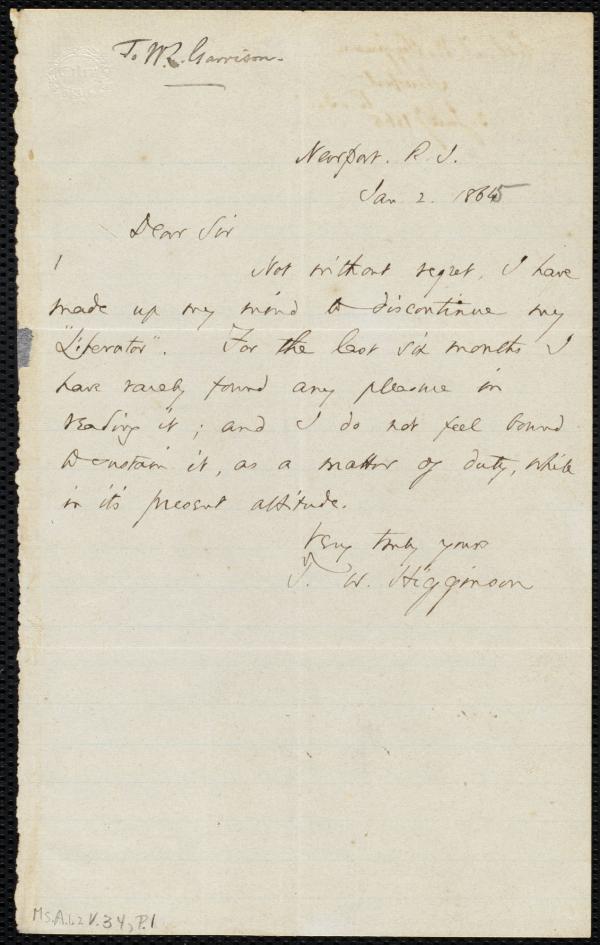 To W. L. Garrison.
Newport. R. I.
Jan 2. 1865
Dear Sir
Not without regret, I have
made up my mind to discontinue my
"Liberator". For the last six months I
have rarely found any pleasure in
reading it; and I do not feel bound
to sustain it, as a matter of duty, while
in it's present attitude.
Very truly yours
T. W. Higginson
Ms.A.1.2 V.34, P.1